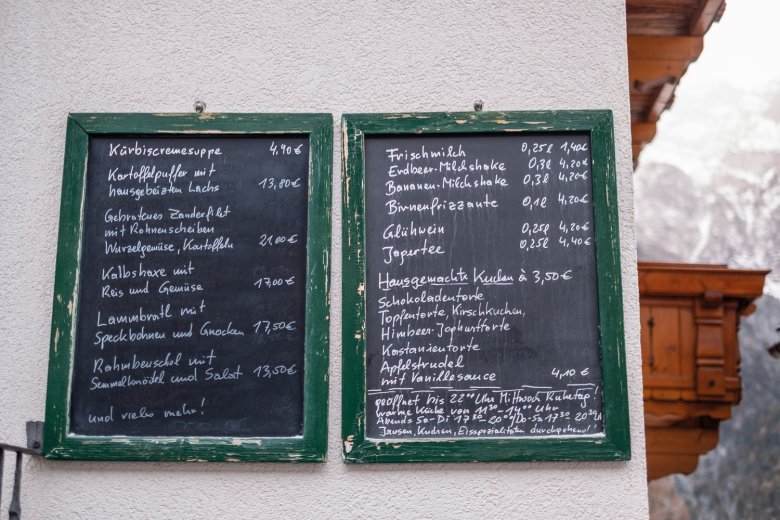 Kürbiscremesuppe 4,90€
Kartoffelpuffer mit
hausgebeizten Lachs 13,80€
Gebratenes Zanderfilet
mit Rohnenscheiben
Wurzelgemüse, Kartoffeln 21,00€
Kalbshaxe mit
Reis und Gemüse 17,00€
Lammbratl mit
Speckbohnen und Gnocken 17,50€
Rahmbeuschel mit
Semmelknödel und Salat 13,50€
und vieles mehr!
Frischmilch 0,25l 1,40€
Erdbeer-Milchshake 0,3l 4,20€
Bananen-Milchshake 0,3l 4,20€
Birnenfrizzante 0,1l 4,20€
Glühwein 0,25l 4,20€
Jagertee 0,25l 4,40€
Hausgemachte Kuchen à 3,50€
Schokoladentorte
Topfentorte, Kirschkuchen,
Himbeer-Joghurttorte
Kastanientorte
Apfelstrudel
mit Vanillesauce 4,10€
geöffnet bis 22⁰⁰ Uhr Mittwoch Ruhetag!
warme Küche von 11³⁰-14⁰⁰ Uhr
Abends So-Di 17³⁰-20⁰⁰/Do-Sa 17³⁰-20³⁰
Jausen, Kuchen, Eisspezialitäten durchgehend!